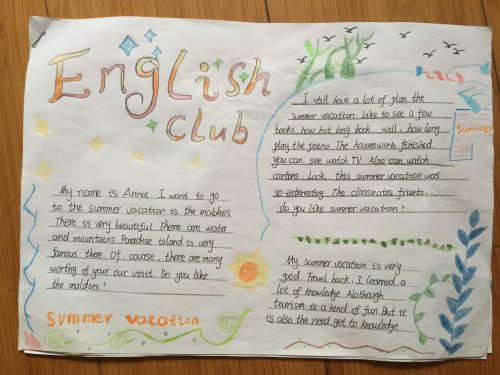 English
club
My name is Annie. I want to go
to the summer vacation is the maldives.
There is very beautiful. There are water
and mountains. Paradise island is very
famous there. Of course, there are many
worthy of your our visit. Do you like
the maldies?
Summer vacation
I still have a lot of plan the
summer vacation. Like to see a few
books, how hot long book. will, how long
play the paino. The housework finished,
you can see watch TV. Also can watch
cartons. Look, this summer vacation was
so interesting. The classmates frisets,
do you like summer vacation?
Summer
My summer vacation is very
good. Travel back, I learned a
lot of knowledge. Alothough
tourism is a kind of fun. But it
is also the need get to knowledge.